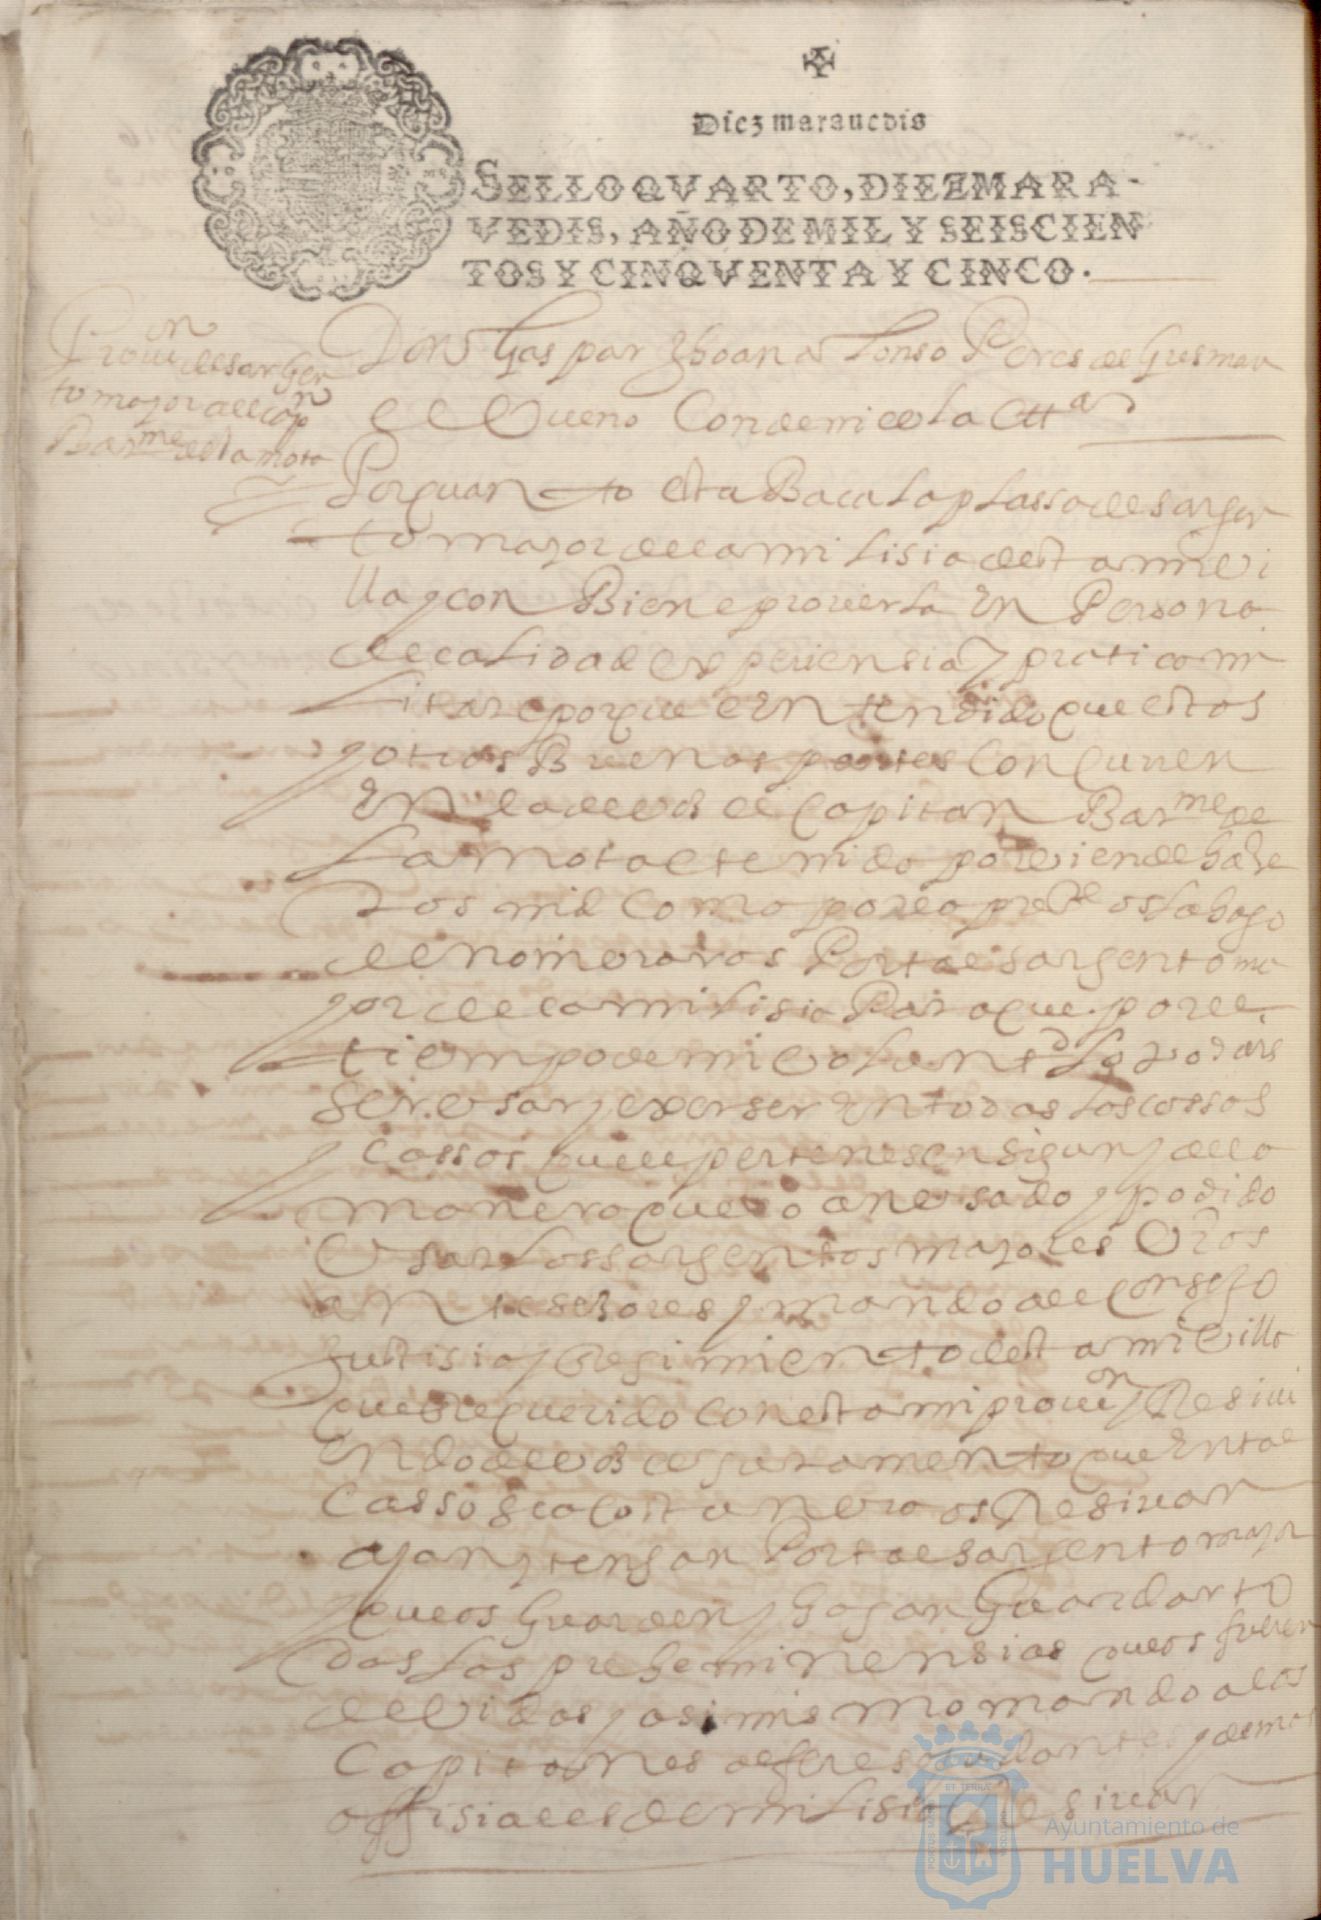 Diez marauedis
SELLO QVARTO, DIEZ MARA-
VEDIS, AÑO DE MIL Y SEISCIEN
TOS Y CINQVENTA Y CINCO.
Prouion de sargen
to mayor del capn
Barme de la mota
Don Gaspar Jhoan Alonso Peres de Gusman
el Bueno Conde de niebla etta
Por quanto esta Baca la plassa de sargen
to mayor de la milisia desta mi vi
lla y con Biene proverla En Persona
de calidad experiensia y pratica mi
litar e porque e Entendido que estas
y otras Buenas partes Concurren
En la de vos el Capitan Barme de
la mota e tenido por vien de haze
ros md como por la preste os la hago
de nombraros Por tal sargento ma
yor de la milisia Para que por el
tiempo de mi voluntd lo podais
ser vsar y exerser En todas las cossas
y cassos que le pertenesen sigun y de la
manera que lo an vsado y podido
Vsar los sargentos mayores Vros
antesesores y mando al Consejo
Justisia y Regimiento desta mi Villa
que Requerido con esta mi prouion y Resiui
Endo de vos el juramento que En tal
Casso se acostumbra os Resiuan
ayan y tengan Por tal sargento mayor
y que os Guarden y hagan Guardar to
das las preheminensias que os fueren
devidas y asimismo mando a los
Capitanes alferes ayudantes y demas
offisiales de milisia
ET TERRÆ
Ayuntamiento de
HUELVA